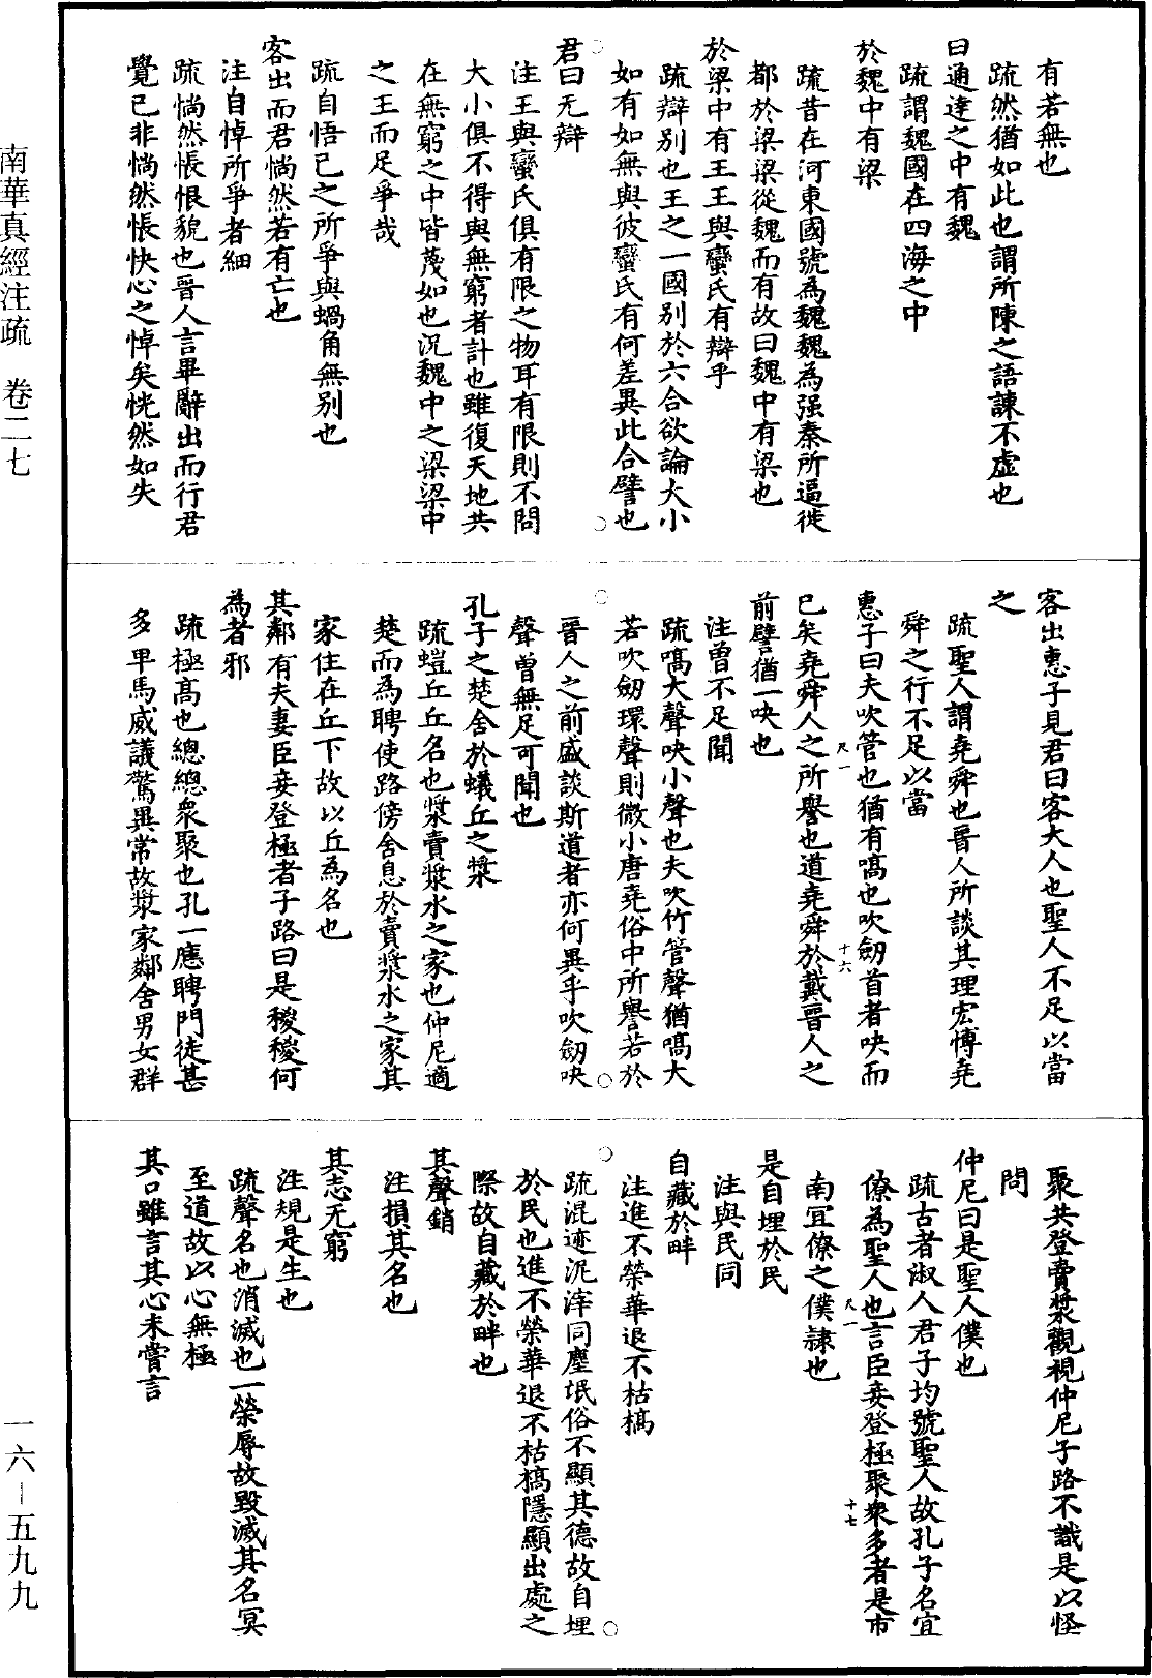 有若無也
疏然猶如此也謂所陳之語諫不虛也
曰通達之中有魏
疏謂魏國在四海之中
於魏中有梁
疏昔在河東國號為魏魏為强秦所逼徙
都於梁梁從魏而有故曰魏中有梁也
於梁中有王王與蠻氏有辯乎
疏辯別也王之一國別於六合欲論大小
如有如無與彼蠻氏有何差異此合譬也
君曰无辯
注王與蠻氏俱有限之物耳有限則不問
大小俱不得與無窮者計也雖復天地共
在無窮之中皆蔑如也況魏中之梁梁中
之王而足爭哉
疏自悟己之所爭與蝸角無別也
客出而君惝然若有亡也
注自悼所爭者細
疏惝然悵恨貌也晉人言畢辭出而行君
覺己非惝然悵怏心之悼矣恍然如失
客出惠子見君曰客大人也聖人不足以當
之
疏聖人謂堯舜也晉人所談其理宏博堯
舜之行不足以當
惠子曰夫吹管也猶有嗃也吹劒首者吷而
已矣堯舜人之所譽也道堯舜於戴晉人之
尺一
十六
前譬猶一吷也
注曾不足聞
疏嗃大聲吷小聲也夫吹竹管聲猶嗃大
若吹劒環聲則微小唐堯俗中所譽若於
晉人之前盛談斯道者亦何異乎吹劒吷
聲曾無足可聞也
孔子之楚舍於蟻丘之漿
疏螘丘丘名也漿賣漿水之家也仲尼適
楚而為聘使路傍舍息於賣漿水之家其
家住在丘下故以丘為名也
其鄰有夫妻臣妾登極者子路曰是稯稯何
為者邪
疏極高也總總衆聚也孔一應聘門徒甚
多早馬威議驚異常故漿家鄰舍男女群
聚共登賣漿觀視仲尼子路不識是以怪
問
仲尼曰是聖人僕也
疏古者淑人君子均號聖人故孔子名宜
僚為聖人也言臣妾登極聚衆多者是市
尺一
十七
南宜僚之僕隷也
是自埋於民
注與民同
自藏於畔
注進不榮華退不枯槁
疏混迹泥滓同塵氓俗不顯其德故自埋
於民也進不榮華退不枯槁隱顯出處之
際故自藏於畔也
其聲銷
注損其名也
其志无窮
注規是生也
疏聲名也消滅也一榮辱故毀滅其名冥
至道故以心無極
其口雖言其心未嘗言
南華真經注疏　卷二七
一六－五九九